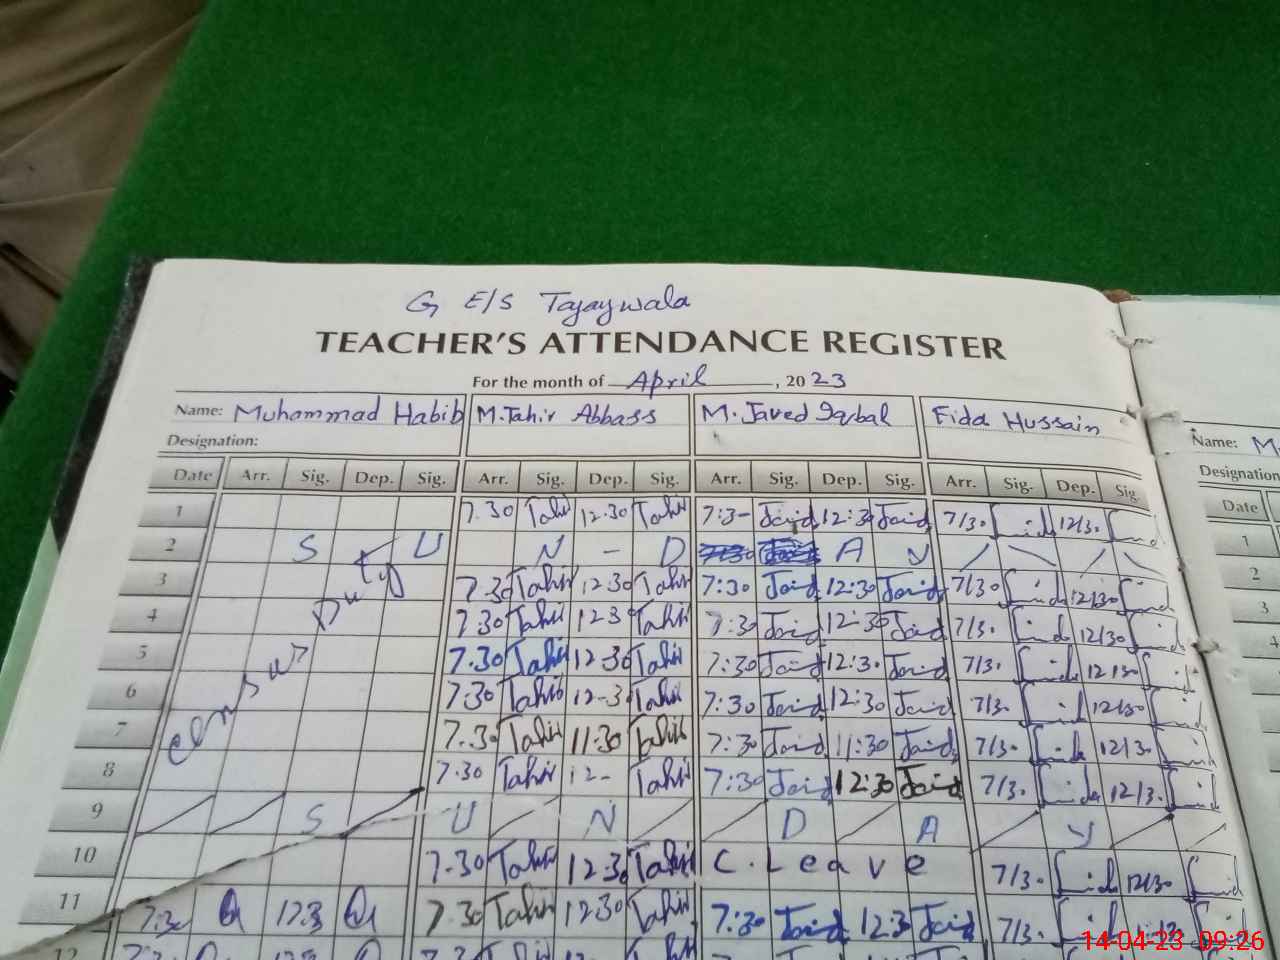 G E/S Tajaywala
TEACHER'S ATTENDANCE REGISTER
For the month of April, 2023
Name: Muhammad Habib M.Tahir Abbass M.Javed Iqbal Fida Hussain Name: M.
Designation: Designation
Date Arr. Sig. Dep. Sig. Arr. Sig. Dep. Sig. Arr. Sig. Dep. Sig. Arr. Sig. Dep. Sig. Date
1 7.30 Tahir 12.30 Tahir 7:3- Javid 12:30 Javid 7/30 12/30 1
2 S U N - D A Y 2
3 7.30 Tahir 12.30 Tahir 7:30 Javid 12:30 Javid 7/30 12/30 3
4 7.30 Tahir 12.30 Tahir 7:30 Javid 12:30 Javid 7/30 12/30 4
5 7.30 Tahir 12.30 Tahir 7:30 Javid 12:30 Javid 7/30 12/30
6 7.30 Tahir 12.30 Tahir 7:30 Javid 12:30 Javid 7/30 12/30
7 7.30 Tahir 11:30 Tahir 7:30 Javid 11:30 Javid 7/30 12/30
8 7.30 Tahir 12- Tahir 7:30 Javid 12:30 Javid 7/30 12/30
Census Duty
9 S U N D A Y
10 7.30 Tahir 12.30 Tahir C. Leave 7/30 12/30
11 7:30 12:30 7.30 Tahir 12.30 Tahir 7:30 Javid 12:30 Javid 7/30
12
14-04-23 09:26